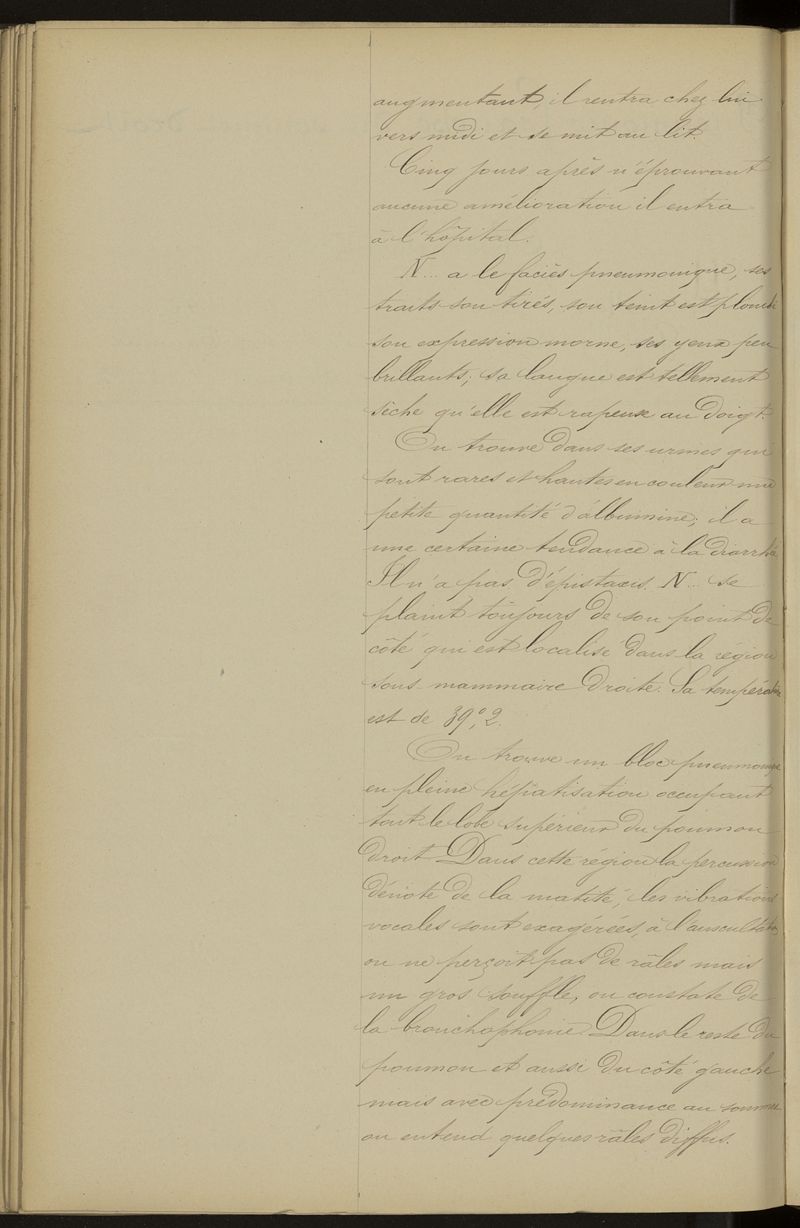 augmentant, il rentra chez lui
vers midi et se mit au lit.
Cinq jours après n'éprouvant
aucune amélioration il entra
à l'hôpital.
N... a le faciès pneumonique, ses
traits son tirés, son teint est plombé
son expression morne, ses yeux peu
brillants; sa langue est tellement
sèche qu'elle est rapeuse au doigt.
On trouve dans ses urines qui
sont rares et hautes en couleur une
petite quantité d'albumine; il a
une certaine tendance à la diarrhée
Il n'a pas d'épistaxis. N... se
plaint toujours de son point de
côté qui est localisé dans la région
sous mammaire droite. Sa température
est de 39°,2.
On trouve un bloc pneumonique
en pleine hépatisation occupant
tout le lobe supérieur du poumon
droit. Dans cette région la percussion
dénote de la matité, les vibrations
vocales sont exagérées, à l'auscultation
on ne perçoit pas de râles mais
un gros souffle, on constate de
la bronchophonie. Dans le reste du
poumon et aussi du côté gauche
mais avec prédominance au sommet
on entend quelques râles diffus.